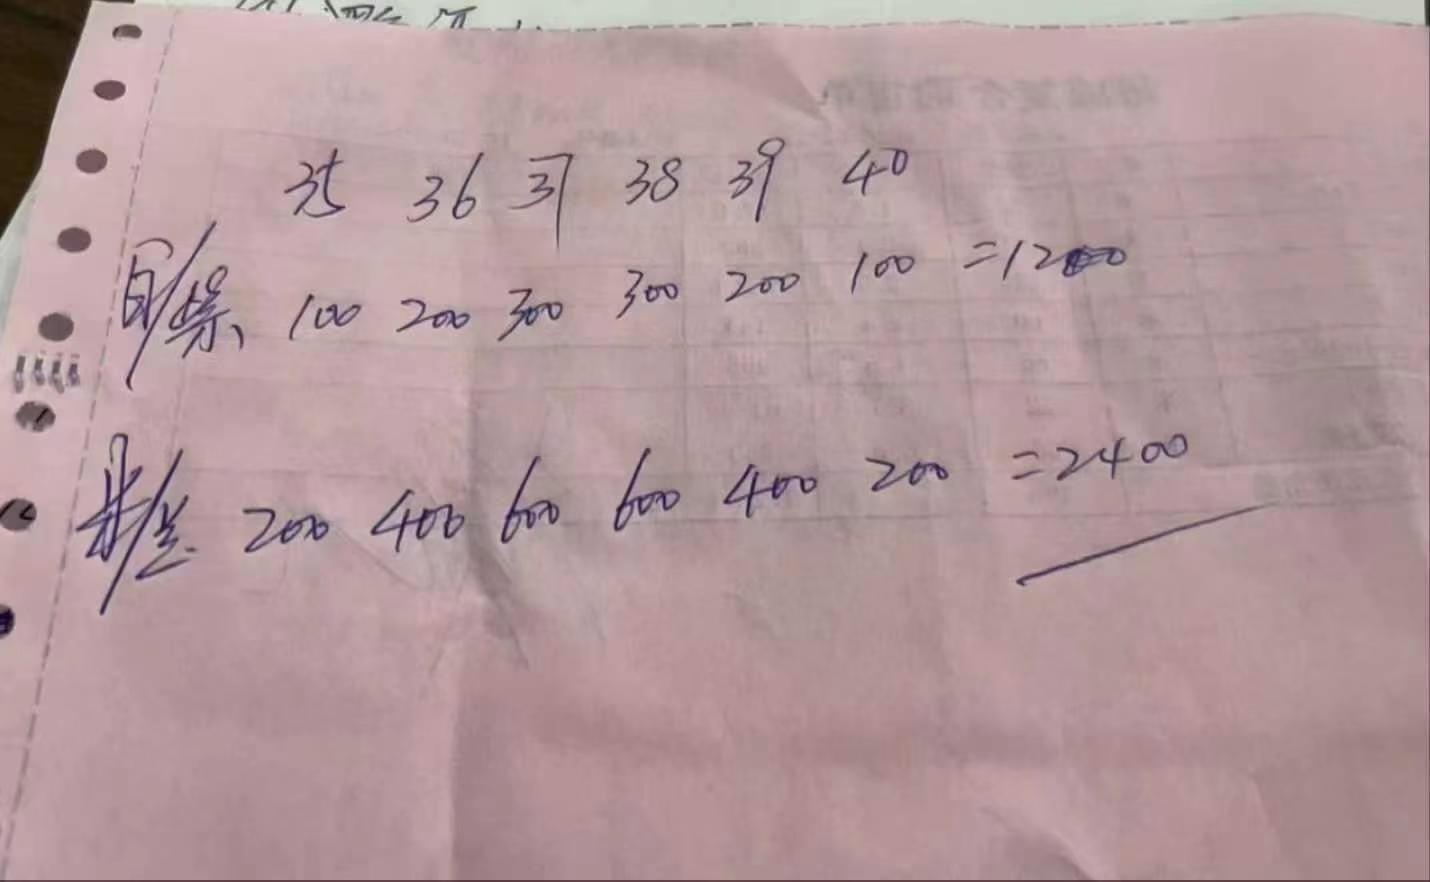 35 36 37 38 39 40
白/紫 100 200 300 300 200 100 =1200
米/兰 200 400 600 600 400 200 =2400